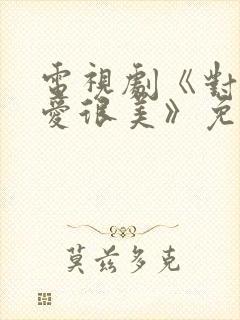 電視劇《對
愛很美》免
莫兹多克